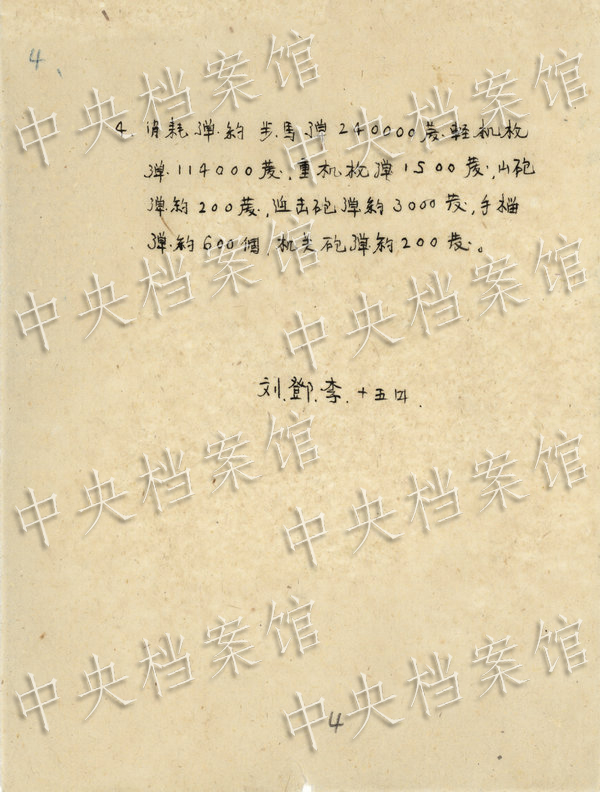 4
4. 消耗弹約步馬弹240000發、輕机枪
弹114000發,重机枪弹1500發,山砲
弹約200發,迫击砲弹約3000發,手榴
弹約600個,机关砲弹約200發。
刘.鄧.李.十五日
4
中央档案馆
中央档案馆
中央档案馆
中央档案馆
中央档案馆
中央档案馆
中央档案馆
中央档案馆